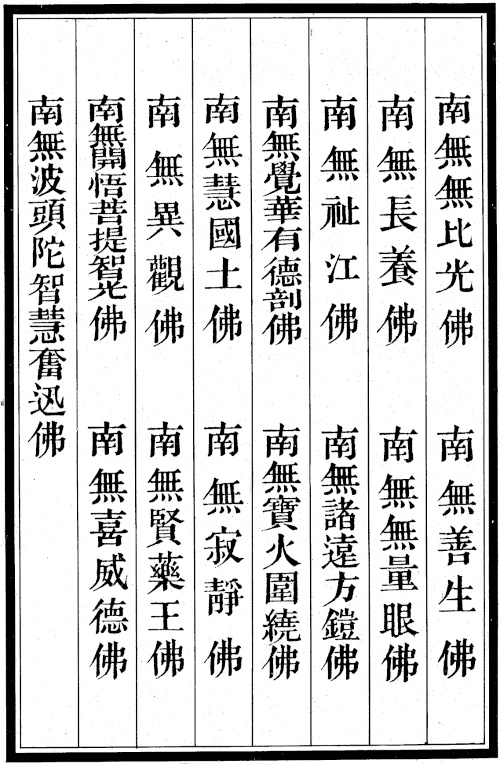 南無無比光佛　南無善生佛
南無長養佛　南無無量眼佛
南無祉江佛　南無諸遠方鎧佛
南無覺華有德剖佛　南無寶火圍繞佛
南無慧國土佛　南無寂靜佛
南無異觀佛　南無賢藥王佛
南無開悟菩提智光佛　南無喜威德佛
南無波頭陀智慧奮迅佛